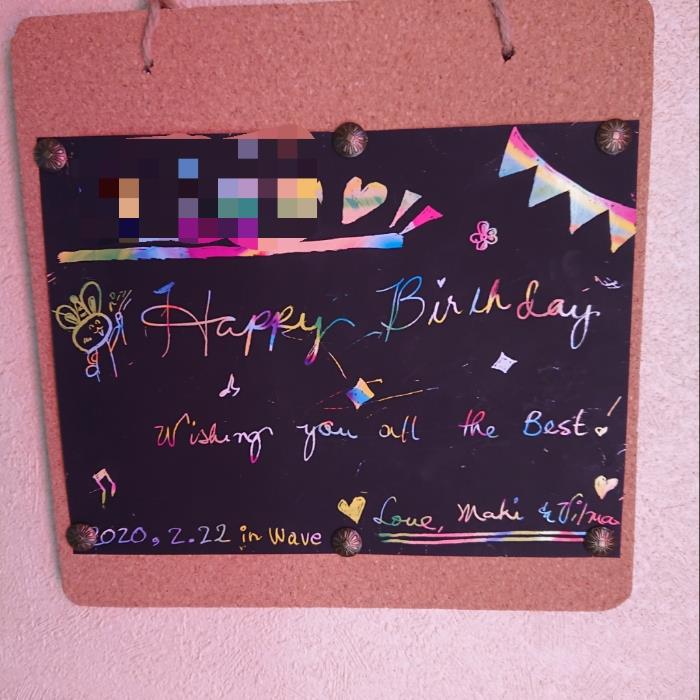 Happy Birthday
Wishing you all the Best!
Love, Maki & Vilma
2020, 2.22 in Wave